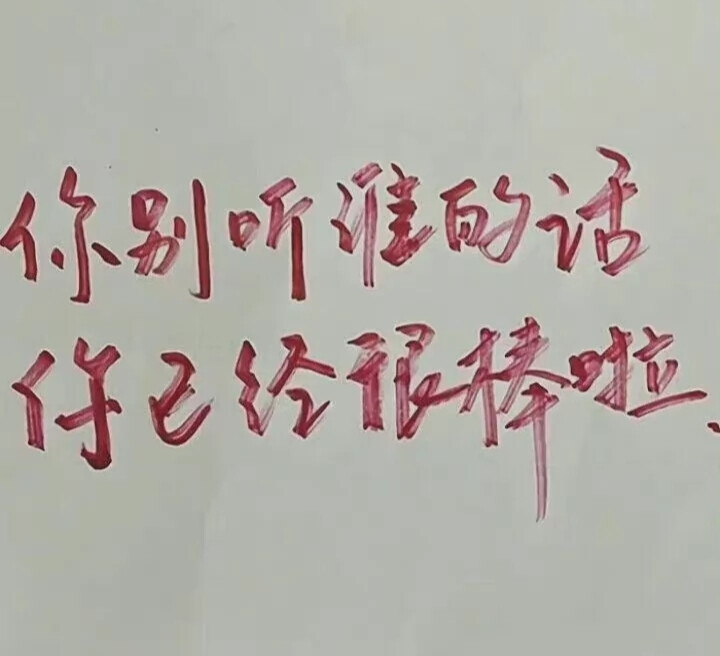 你别听谁的话
你已经很棒啦.